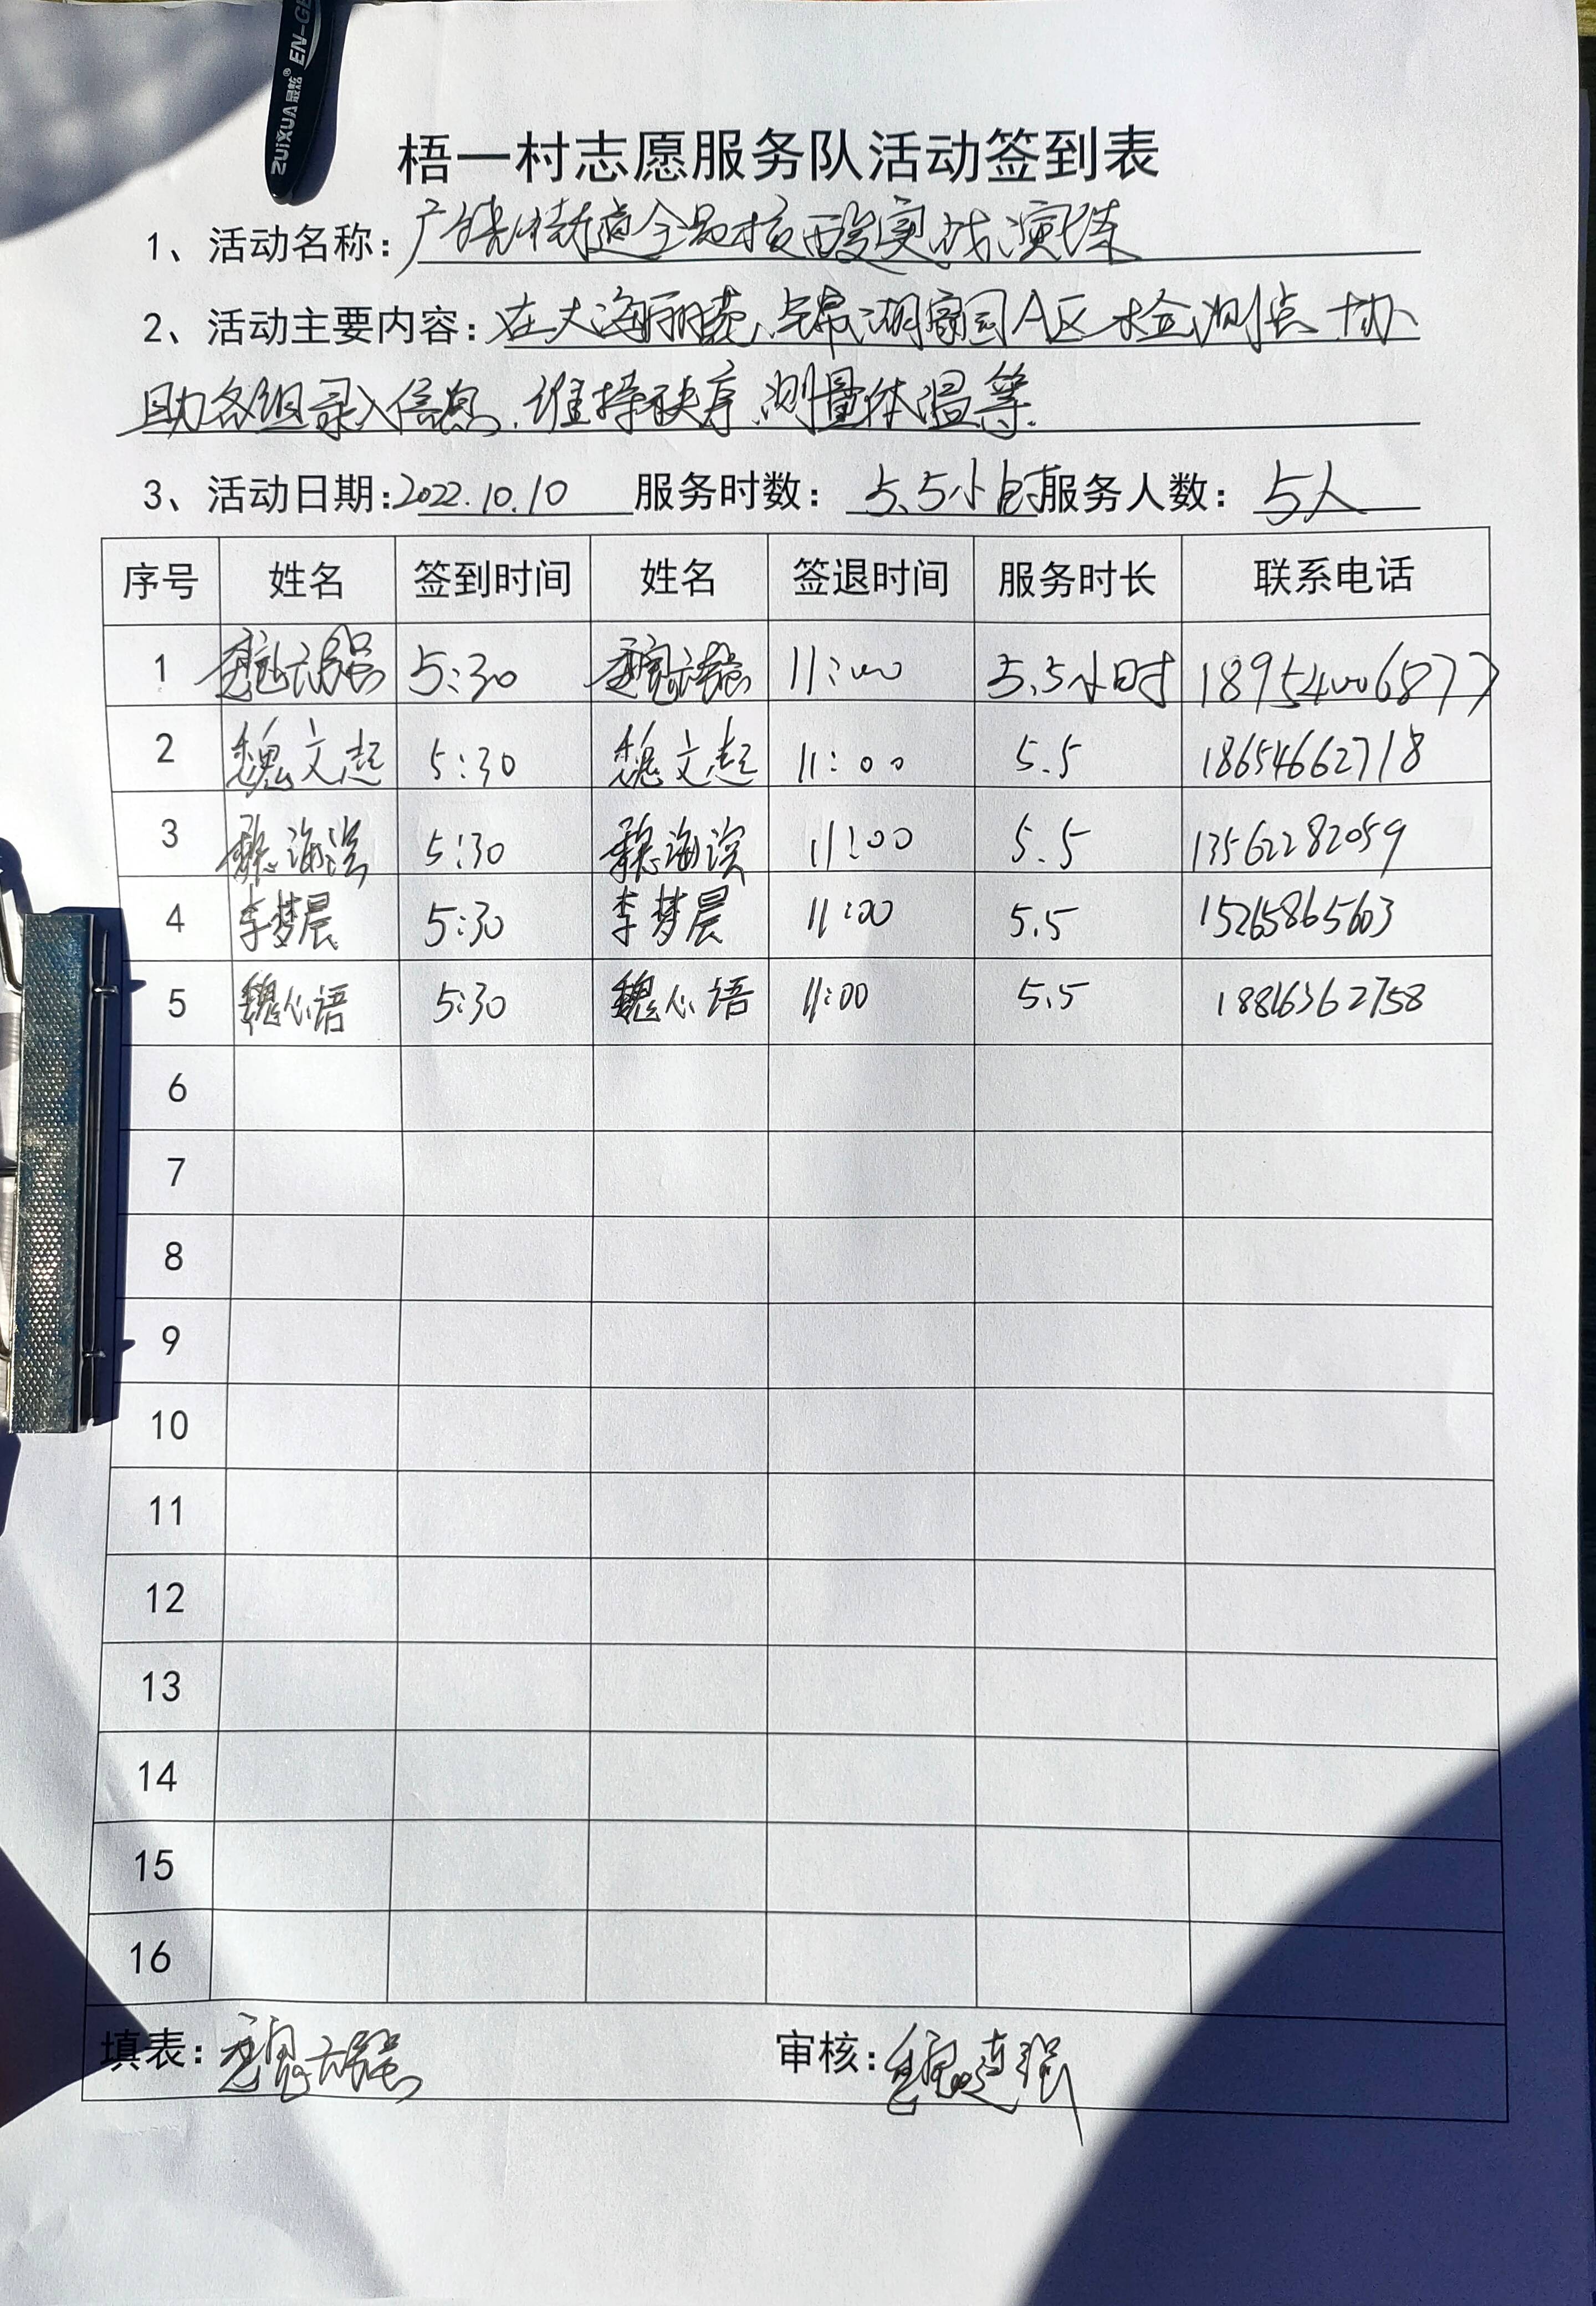 ZUiXUA 最炫® EN-GE
梧一村志愿服务队活动签到表
1、活动名称：广饶街道全员核酸实战演练
2、活动主要内容：在大海丽苑、锦湖家园A区检测点协
助各组录入信息、维持秩序、测量体温等.
3、活动日期：2022.10.10 服务时数：5.5小时 服务人数：5人
序号 姓名 签到时间 姓名 签退时间 服务时长 联系电话
1 魏 5:30 魏 11:00 5.5小时 18954006877
2 魏文起 5:30 魏文起 11:00 5.5 18654662718
3 魏海滨 5:30 魏海滨 11:00 5.5 13562282059
4 李梦晨 5:30 李梦晨 11:00 5.5 15265865603
5 魏心语 5:30 魏心语 11:00 5.5 18816362758
6
7
8
9
10
11
12
13
14
15
16
填表：魏 审核：魏建强